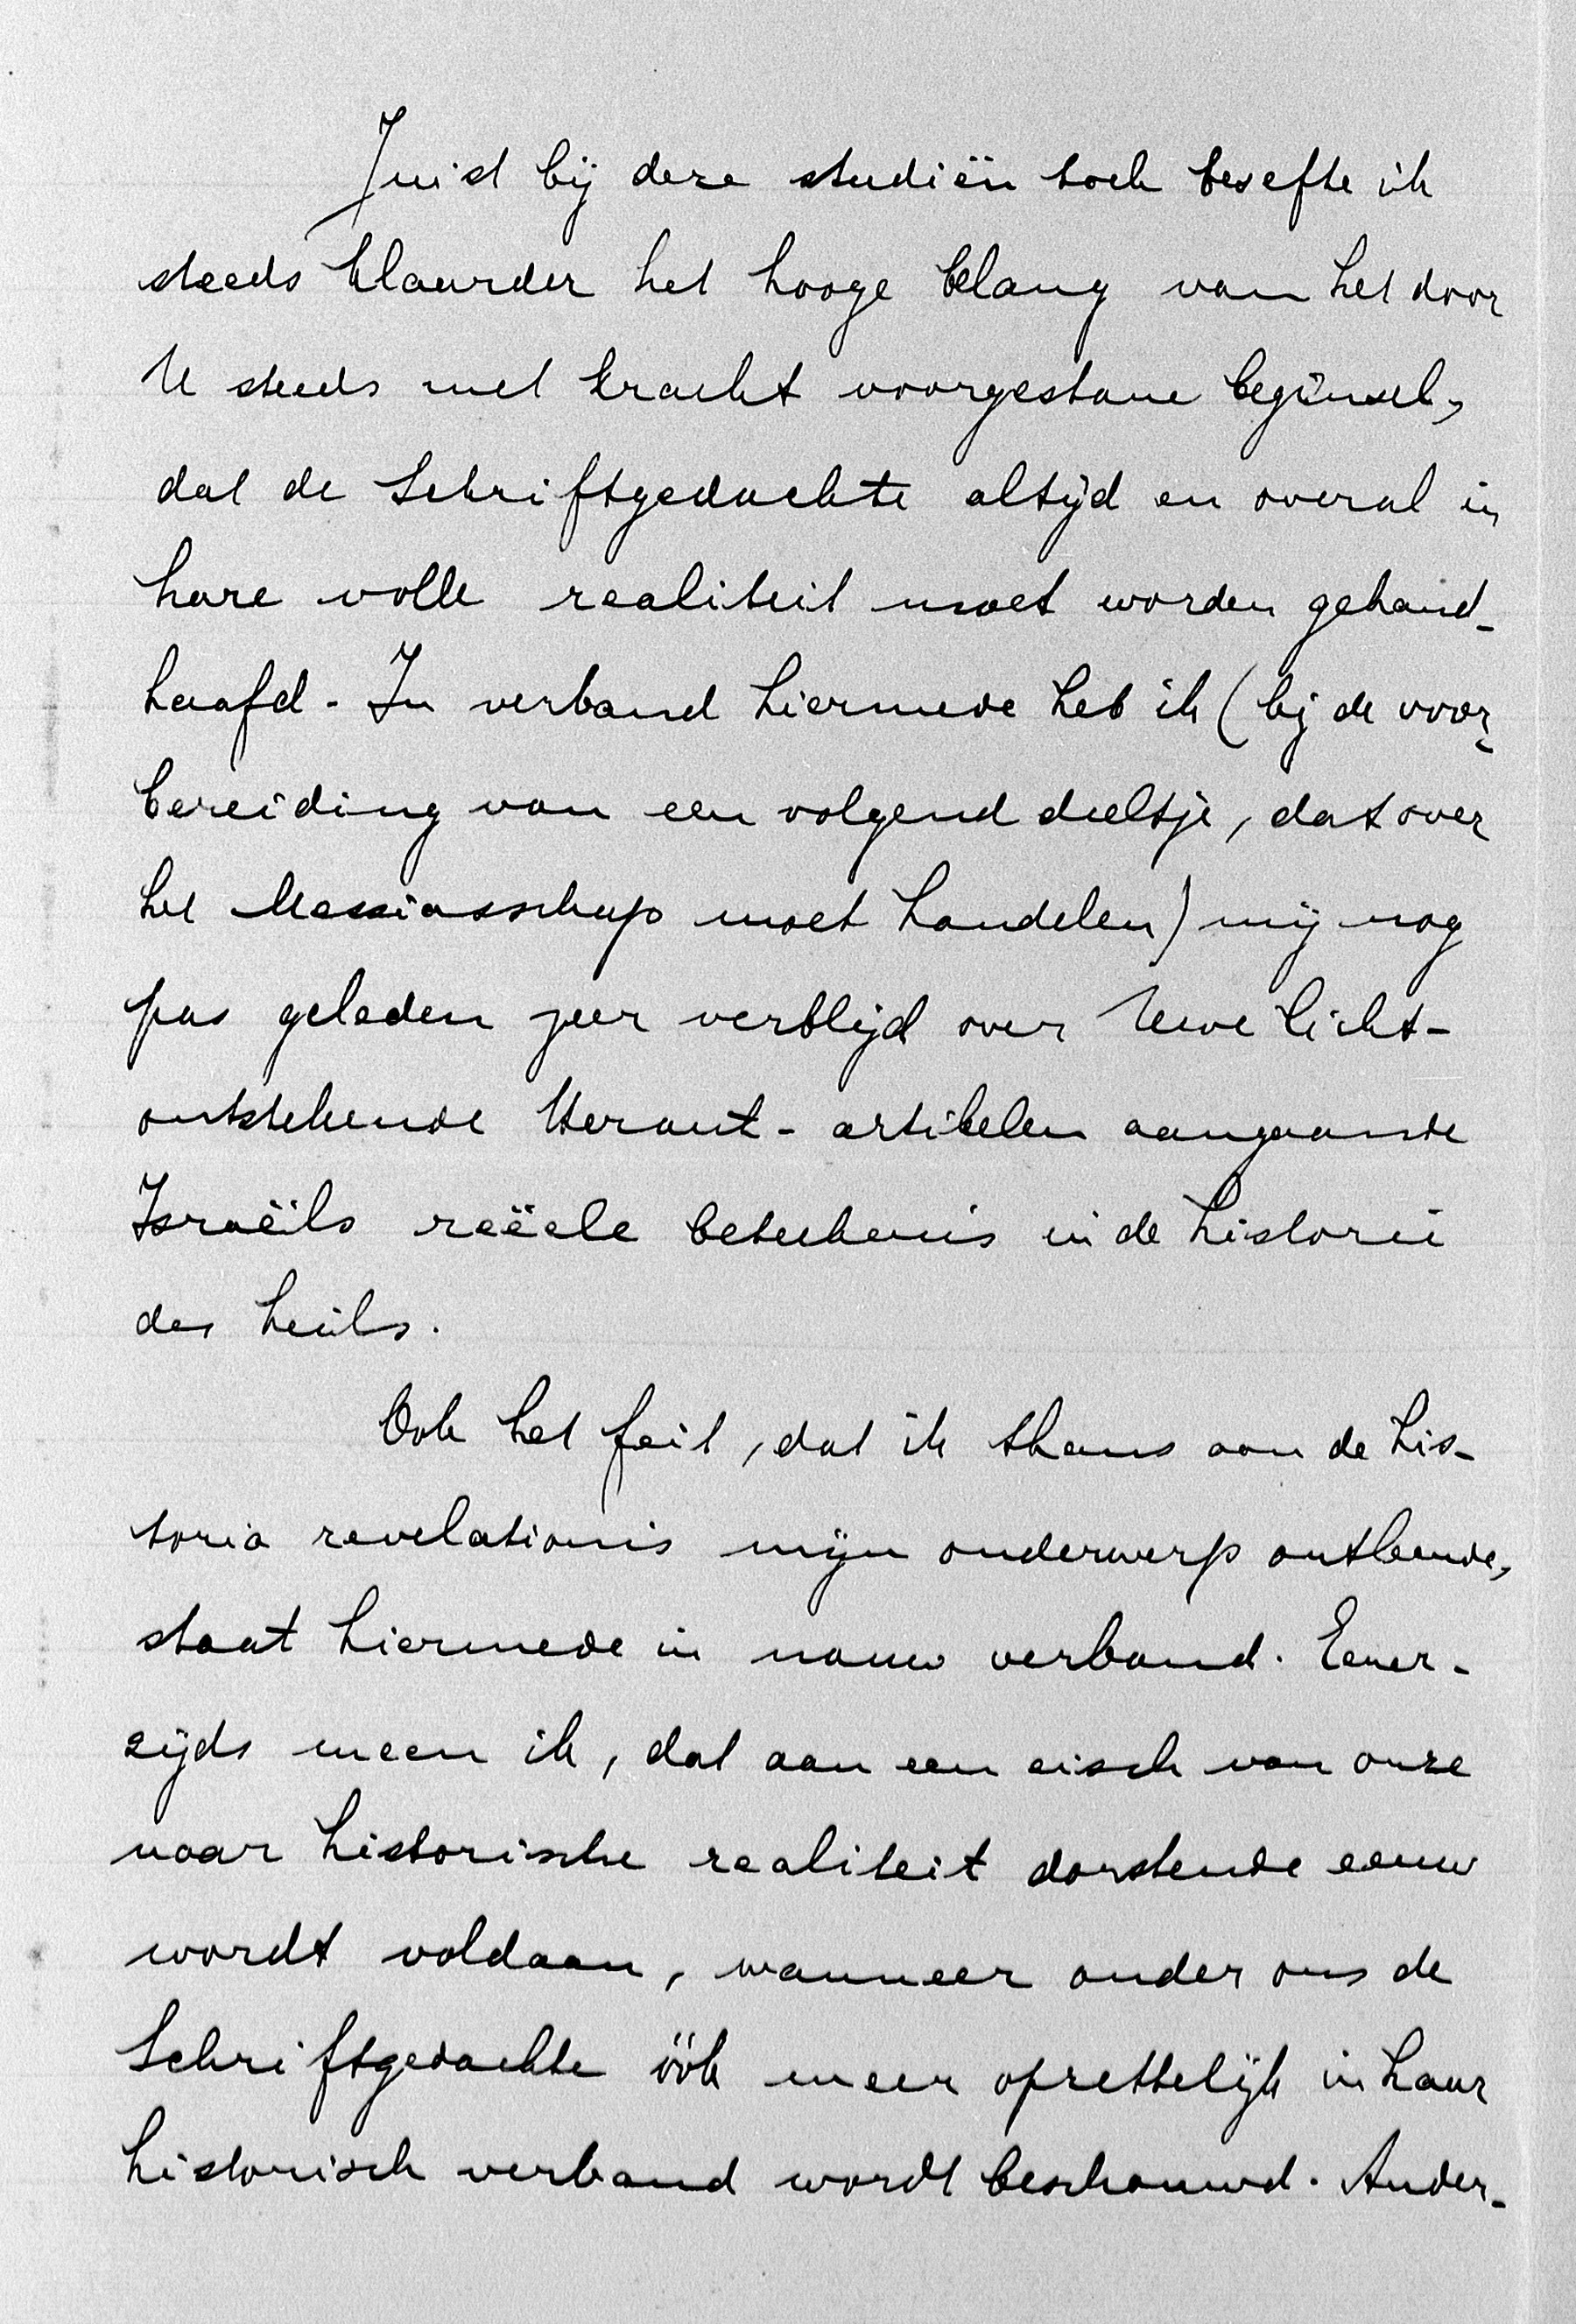 Juist bij deze studiën toch besefte ik
steeds klaarder het hooge belang van het door
U steeds met kracht voorgestane beginsel,
dat de Schriftgedachte altijd en overal in
hare volle realiteit moet worden gehand-
haafd. In verband hiermede heb ik (bij de voor-
bereiding van een volgend deeltje, dat over
het Messiasschap moet handelen) mij nog
pas geleden zeer verblijd over Uwe licht-
ontstekende Heraut-artikelen aangaande
Israëls reëele beteekenis in de historie
des heils.
Ook het feit, dat ik thans aan de his-
toria revelationis mijn onderwerp ontleende,
staat hiermede in nauw verband. Eener-
zijds meen ik, dat aan een eisch van onze
naar historische realiteit dorstende eeuw
wordt voldaan, wanneer onder ons de
Schriftgedachte óók meer opzettelijk in haar
historisch verband wordt beschouwd. Ander-